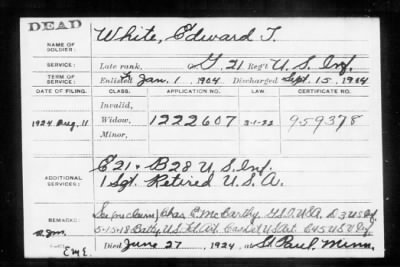 DEAD
NAME OF SOLDIER: White, Edward T.
SERVICE: Late rank, G. 21 Reg't U. S. Inf.
TERM OF SERVICE: Enlisted Jan. 1, 1904 Discharged Sept. 15, 1904
DATE OF FILING. CLASS. APPLICATION NO. LAW CERTIFICATE NO.
Invalid,
1924 Aug. 11 Widow, 1222607 3-1-22 959378
Minor,
ADDITIONAL SERVICES: E 21 + B 28 U. S. Inf.
1 Sgt. Retired U. S. A.
REMARKS: Chas. E. McCarthy
5-15-18 Batty U.S.
EME Died June 27, 1924, at St. Paul, Minn.